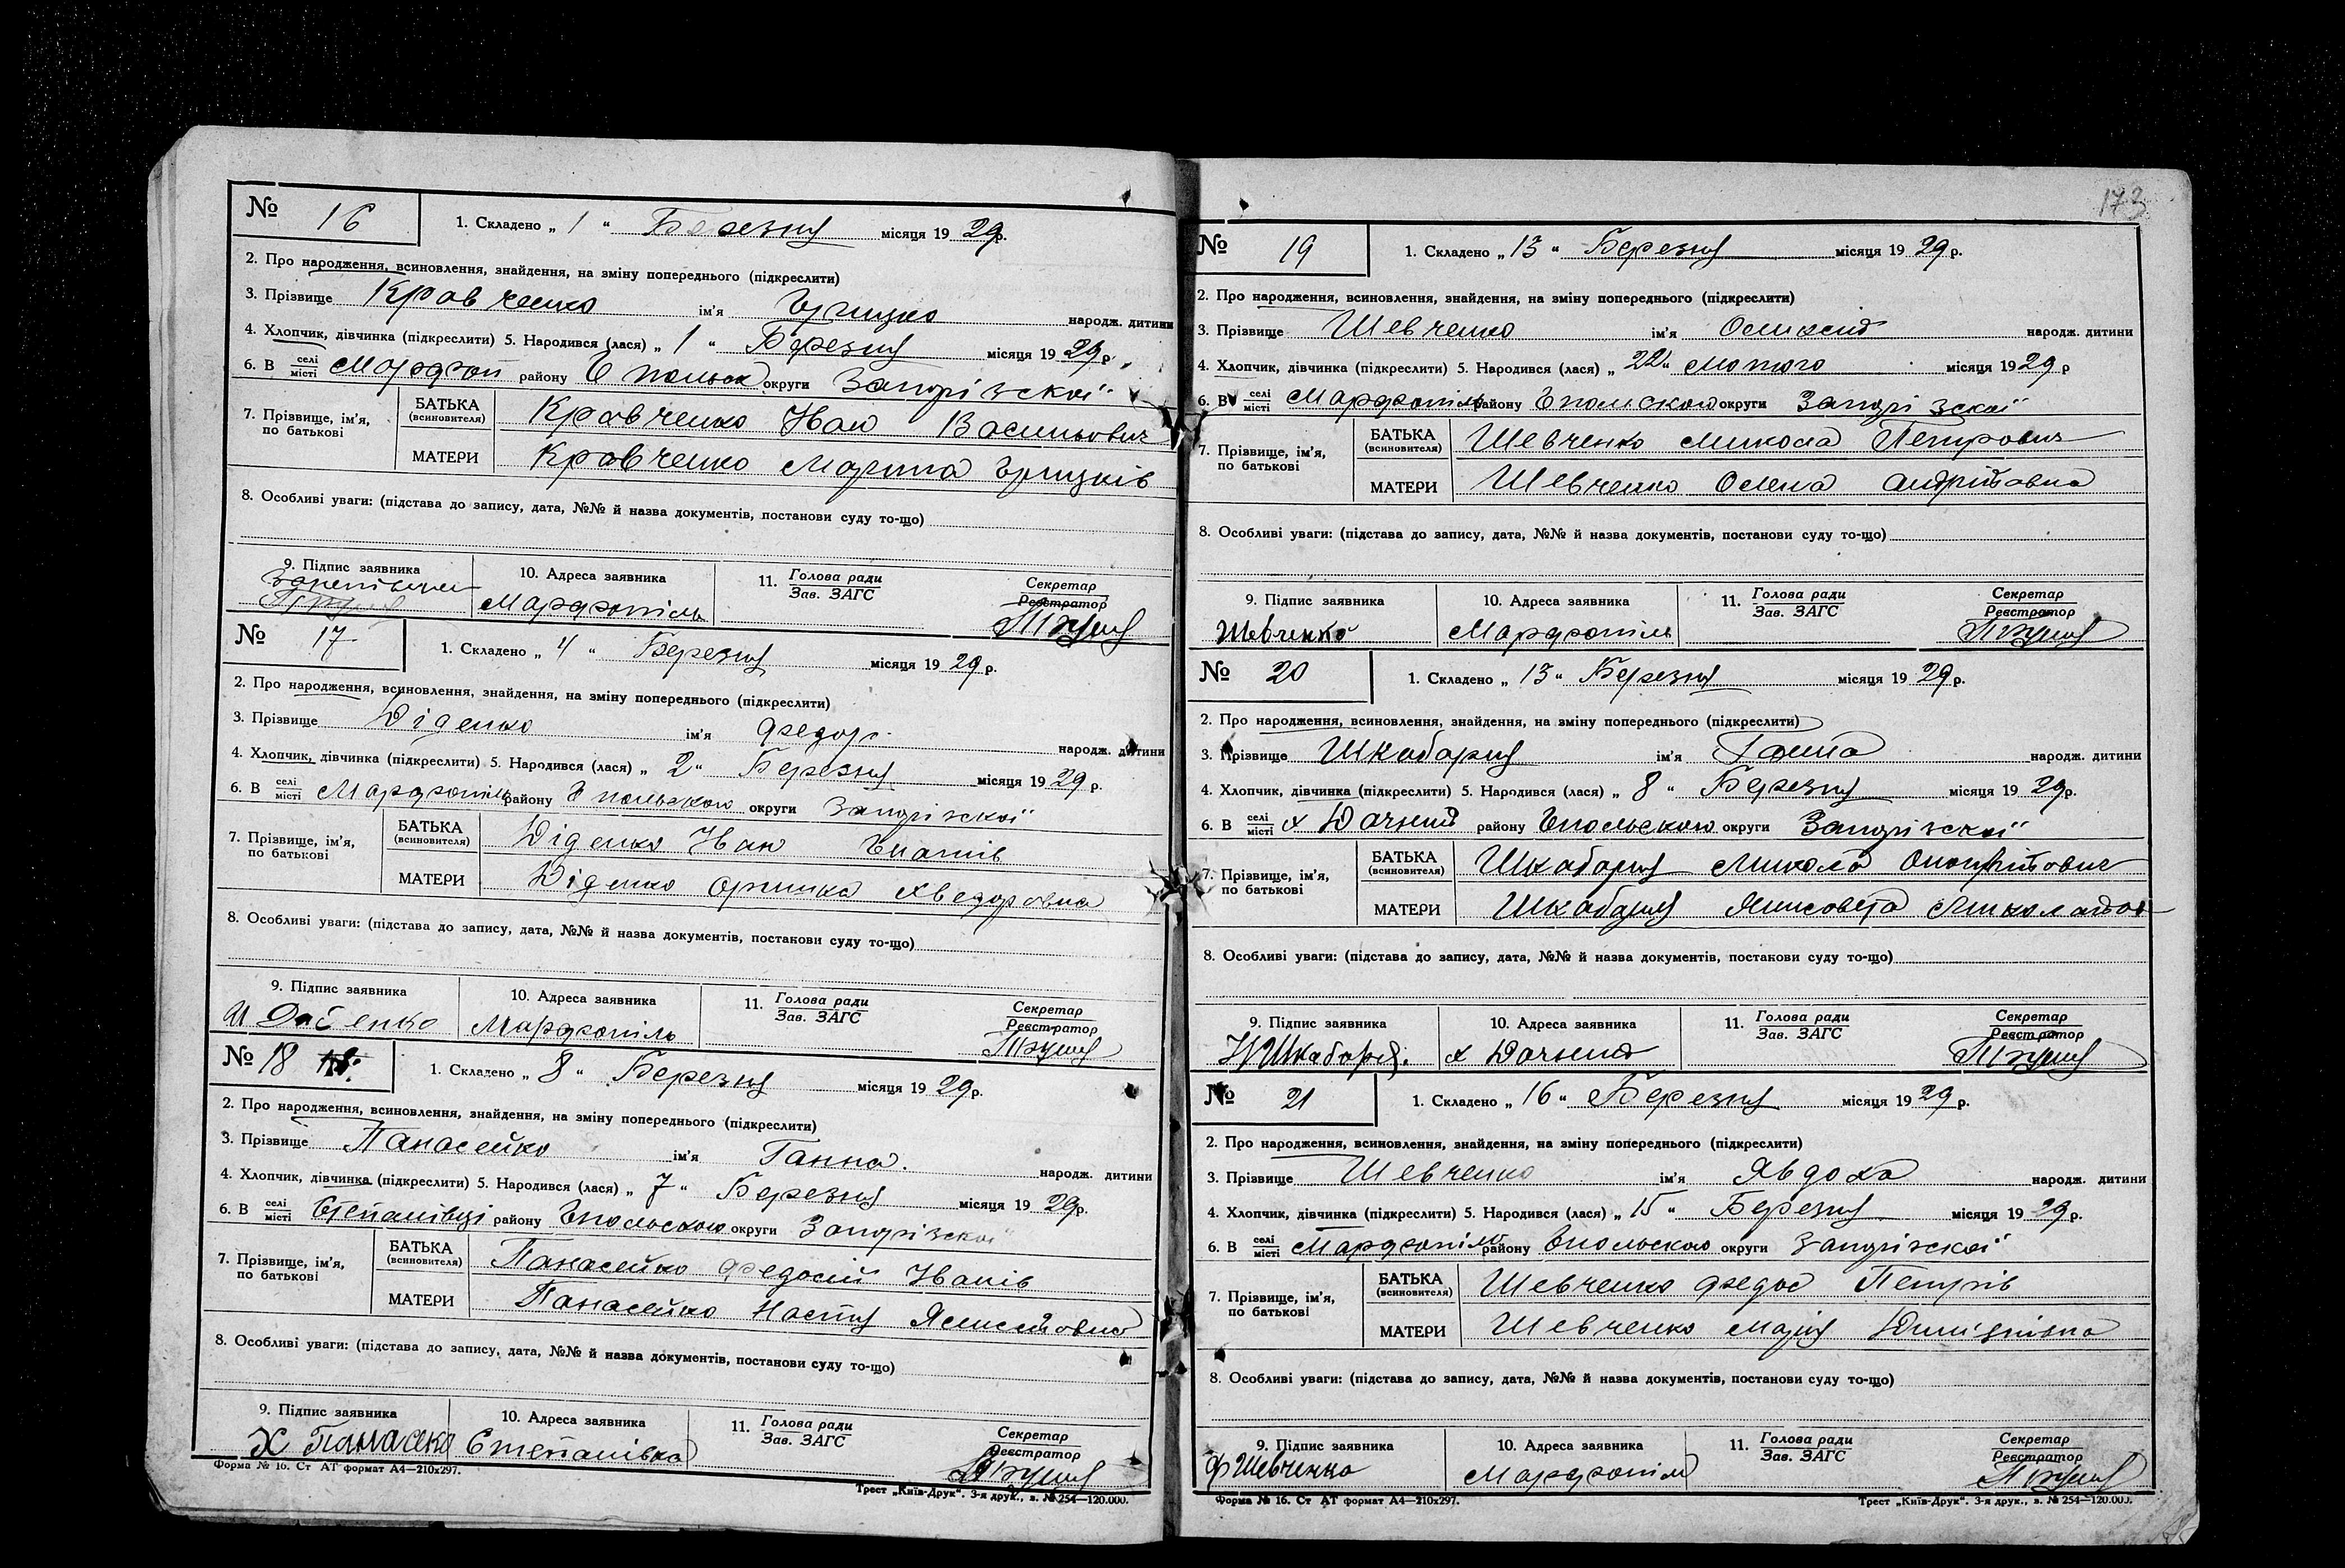 № 16 1. Складено „ 1 “ Березня місяця 19 29 р.
2. Про народження, всиновлення, знайдення, на зміну попереднього (підкреслити)
3. Прізвище Кравченко ім'я Грицко народж. дитини
4. Хлопчик, дівчинка (підкреслити) 5. Народився (лася) „ 1 “ Березня місяця 19 29 р.
6. В селі місті Марфоп району округи Запорізскої
7. Прізвище, ім'я, по батькові БАТЬКА (всиновителя) Кравченко Иван Васильович
МАТЕРИ Кравченко Марина Грицків
8. Особливі уваги: (підстава до запису, дата, №№ й назва документів, постанови суду то-що)
9. Підпис заявника 10. Адреса заявника 11. Голова ради Зав. ЗАГС Секретар Реєстратор
Марфопіль
№ 17 1. Складено „ 4 “ Березня місяця 19 29 р.
2. Про народження, всиновлення, знайдення, на зміну попереднього (підкреслити)
3. Прізвище Діденко ім'я Федор. народж. дитини
4. Хлопчик, дівчинка (підкреслити) 5. Народився (лася) „ 2 “ Березня місяця 19 29 р.
6. В селі місті Марфопіль району Гпольского округи Запорізскої
7. Прізвище, ім'я, по батькові БАТЬКА (всиновителя) Діденко Иван Гнатів
МАТЕРИ Діденко Оришка Хведоровна
8. Особливі уваги: (підстава до запису, дата, №№ й назва документів, постанови суду то-що)
9. Підпис заявника 10. Адреса заявника 11. Голова ради Зав. ЗАГС Секретар Реєстратор
Марфопіль
№ 18 1. Складено „ 8 “ Березня місяця 19 29 р.
2. Про народження, всиновлення, знайдення, на зміну попереднього (підкреслити)
3. Прізвище Панасейко ім'я Ганна. народж. дитини
4. Хлопчик, дівчинка (підкреслити) 5. Народився (лася) „ 7 “ Березня місяця 19 29 р.
6. В селі місті Степанівці району Гпольского округи Запорізскої
7. Прізвище, ім'я, по батькові БАТЬКА (всиновителя) Панасейко Федосій Иванів
МАТЕРИ Панасейко Настя
8. Особливі уваги: (підстава до запису, дата, №№ й назва документів, постанови суду то-що)
9. Підпис заявника 10. Адреса заявника 11. Голова ради Зав. ЗАГС Секретар Реєстратор
Х Степанівка
Форма № 16. Ст АТ формат А4—210х297. Трест „Київ-Друк“. 3-я друк., в. № 254—120.000.
173
№ 19 1. Складено „ 13 “ Березня місяця 19 29 р.
2. Про народження, всиновлення, знайдення, на зміну попереднього (підкреслити)
3. Прізвище Шевченко ім'я народж. дитини
4. Хлопчик, дівчинка (підкреслити) 5. Народився (лася) „ 22 “ Лютого місяця 19 29 р
6. В селі місті Марфопіль району Гпольского округи Запорізскої
7. Прізвище, ім'я, по батькові БАТЬКА (всиновителя) Шевченко Микола Петрович
МАТЕРИ Шевченко Олена Андріївна
8. Особливі уваги: (підстава до запису, дата, №№ й назва документів, постанови суду то-що)
9. Підпис заявника 10. Адреса заявника 11. Голова ради Зав. ЗАГС Секретар Реєстратор
Шевченко Марфопіль
№ 20 1. Складено „ 13 “ Березня місяця 19 29 р.
2. Про народження, всиновлення, знайдення, на зміну попереднього (підкреслити)
3. Прізвище Шкабаря ім'я Ганна народж. дитини
4. Хлопчик, дівчинка (підкреслити) 5. Народився (лася) „ 8 “ Березня місяця 19 29 р.
6. В селі місті х Дачний району Гпольского округи Запорізскої
7. Прізвище, ім'я, по батькові БАТЬКА (всиновителя) Шкабаря Микола
МАТЕРИ Шкабаря Ялисовета
8. Особливі уваги: (підстава до запису, дата, №№ й назва документів, постанови суду то-що)
9. Підпис заявника 10. Адреса заявника 11. Голова ради Зав. ЗАГС Секретар Реєстратор
Н Шкабаря. х Дачний
№ 21 1. Складено „ 16 “ Березня місяця 19 29 р.
2. Про народження, всиновлення, знайдення, на зміну попереднього (підкреслити)
3. Прізвище Шевченко ім'я Явдоха народж. дитини
4. Хлопчик, дівчинка (підкреслити) 5. Народився (лася) „ 15 “ Березня місяця 19 29 р.
6. В селі місті Марфопіль району Гпольского округи Запорізскої
7. Прізвище, ім'я, по батькові БАТЬКА (всиновителя) Шевченко Федос Петрів
МАТЕРИ Шевченко Марія
8. Особливі уваги: (підстава до запису, дата, №№ й назва документів, постанови суду то-що)
9. Підпис заявника 10. Адреса заявника 11. Голова ради Зав. ЗАГС Секретар Реєстратор
Ф Шевченко Марфопіль
Форма № 16. Ст АТ формат А4—210х297. Трест „Київ-Друк“. 3-я друк., в. № 254—120.000.